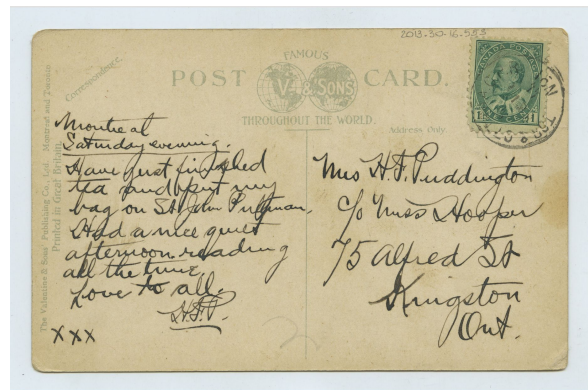 2013.30-16.553
FAMOUS
POST CARD.
V. & SONS
THROUGHOUT THE WORLD.
Correspondence.
Address Only
The Valentine & Sons' Publishing Co., Ltd., Montreal and Toronto
Printed in Great Britain.
CANADA POSTAGE
1 1
ONE CENT
Montreal
Saturday evening.
Have just finished
tea and put my
bag on St. John Pullman.
Had a nice quiet
afternoon reading
all the time.
Love to all.
H.F.P.
xxx
Mrs H.F. Puddington
c/o Miss Hooper
75 Alfred St
Kingston
Ont.